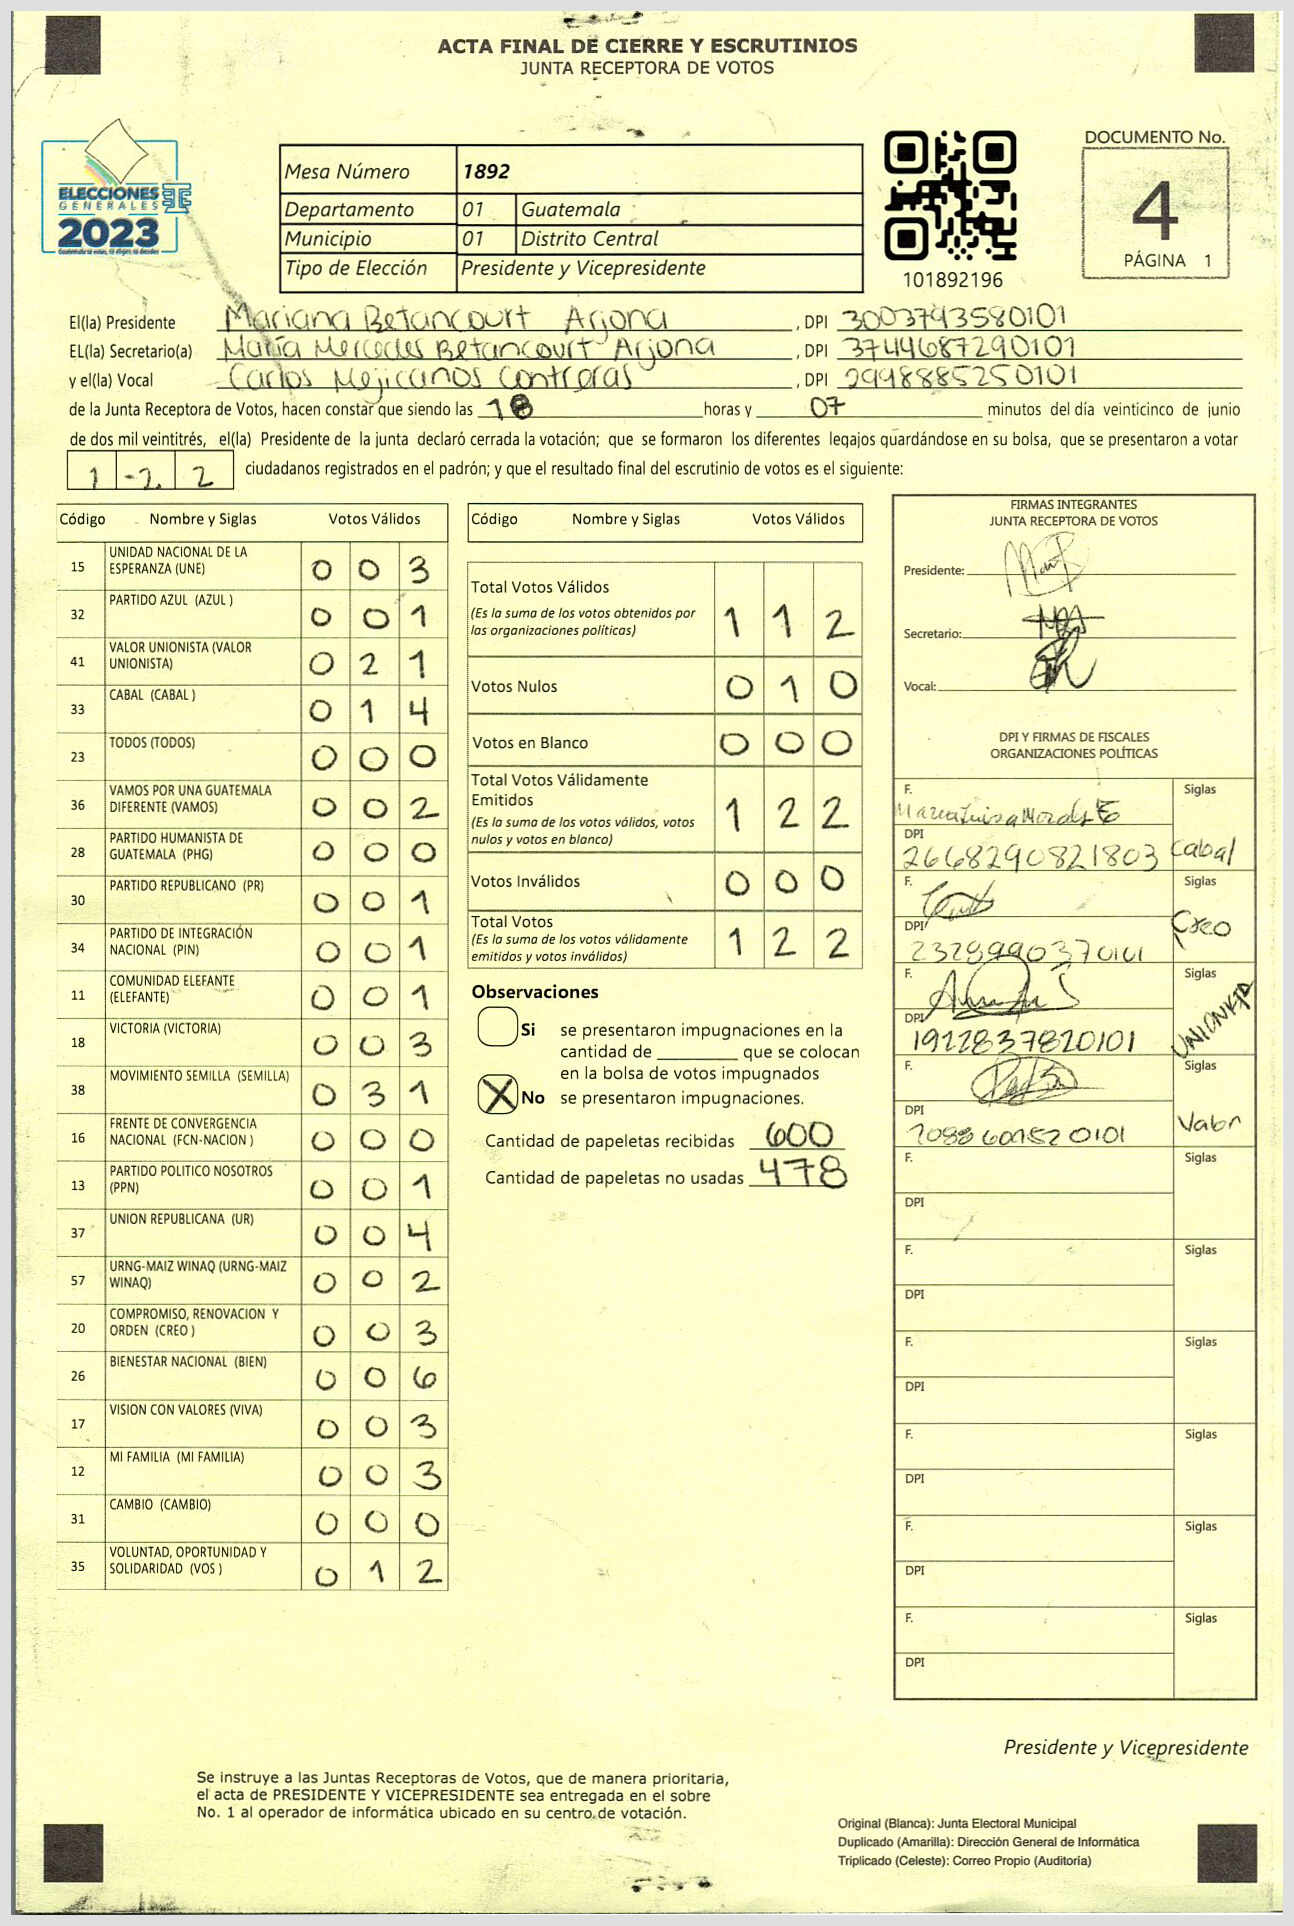 ACTA FINAL DE CIERRE Y ESCRUTINIOS
JUNTA RECEPTORA DE VOTOS
ELECCIONES
GENERALES
2023
Mesa Número 1892
Departamento 01 Guatemala
Municipio 01 Distrito Central
Tipo de Elección Presidente y Vicepresidente
101892196
DOCUMENTO No.
4
PÁGINA 1
El(la) Presidente Mariana Betancourt Arjona, DPI 3003793580101
EL(la) Secretario(a) María Mercedes Betancourt Arjona, DPI 3744687290101
y el(la) Vocal Carlos Mejicanos Contreras, DPI 2998885250101
de la Junta Receptora de Votos, hacen constar que siendo las 18 horas y 07 minutos del día veinticinco de junio
de dos mil veintitrés, el(la) Presidente de la junta declaró cerrada la votación; que se formaron los diferentes legajos guardándose en su bolsa, que se presentaron a votar
1 2 2 ciudadanos registrados en el padrón; y que el resultado final del escrutinio de votos es el siguiente:
Código Nombre y Siglas Votos Válidos
15 UNIDAD NACIONAL DE LA ESPERANZA (UNE) 0 0 3
32 PARTIDO AZUL (AZUL ) 0 0 1
41 VALOR UNIONISTA (VALOR UNIONISTA) 0 2 1
33 CABAL (CABAL ) 0 1 4
23 TODOS (TODOS) 0 0 0
36 VAMOS POR UNA GUATEMALA DIFERENTE (VAMOS) 0 0 2
28 PARTIDO HUMANISTA DE GUATEMALA (PHG) 0 0 0
30 PARTIDO REPUBLICANO (PR) 0 0 1
34 PARTIDO DE INTEGRACIÓN NACIONAL (PIN) 0 0 1
11 COMUNIDAD ELEFANTE (ELEFANTE) 0 0 1
18 VICTORIA (VICTORIA) 0 0 3
38 MOVIMIENTO SEMILLA (SEMILLA) 0 3 1
16 FRENTE DE CONVERGENCIA NACIONAL (FCN-NACION ) 0 0 0
13 PARTIDO POLITICO NOSOTROS (PPN) 0 0 1
37 UNION REPUBLICANA (UR) 0 0 4
57 URNG-MAIZ WINAQ (URNG-MAIZ WINAQ) 0 0 2
20 COMPROMISO, RENOVACION Y ORDEN (CREO ) 0 0 3
26 BIENESTAR NACIONAL (BIEN) 0 0 6
17 VISION CON VALORES (VIVA) 0 0 3
12 MI FAMILIA (MI FAMILIA) 0 0 3
31 CAMBIO (CAMBIO) 0 0 0
35 VOLUNTAD, OPORTUNIDAD Y SOLIDARIDAD (VOS ) 0 1 2
Código Nombre y Siglas Votos Válidos
Total Votos Válidos 1 1 2
(Es la suma de los votos obtenidos por
las organizaciones políticas)
Votos Nulos 0 1 0
Votos en Blanco 0 0 0
Total Votos Válidamente
Emitidos 1 2 2
(Es la suma de los votos válidos, votos
nulos y votos en blanco)
Votos Inválidos 0 0 0
Total Votos 1 2 2
(Es la suma de los votos válidamente
emitidos y votos inválidos)
Observaciones
Si se presentaron impugnaciones en la
cantidad de ________ que se colocan
en la bolsa de votos impugnados
X No se presentaron impugnaciones.
Cantidad de papeletas recibidas 600
Cantidad de papeletas no usadas 478
FIRMAS INTEGRANTES
JUNTA RECEPTORA DE VOTOS
Presidente:
Secretario:
Vocal:
DPI Y FIRMAS DE FISCALES
ORGANIZACIONES POLÍTICAS
F. Siglas
DPI 2668290821803 Cabal
F. Siglas
DPI Creo
F. Siglas
DPI 1912837820101 UNIONISTA
F. Siglas
DPI Valor
F. Siglas
DPI
F. Siglas
DPI
F. Siglas
DPI
F. Siglas
DPI
F. Siglas
DPI
F. Siglas
DPI
Presidente y Vicepresidente
Se instruye a las Juntas Receptoras de Votos, que de manera prioritaria,
el acta de PRESIDENTE Y VICEPRESIDENTE sea entregada en el sobre
No. 1 al operador de informática ubicado en su centro de votación.
Original (Blanca): Junta Electoral Municipal
Duplicado (Amarilla): Dirección General de Informática
Triplicado (Celeste): Correo Propio (Auditoría)